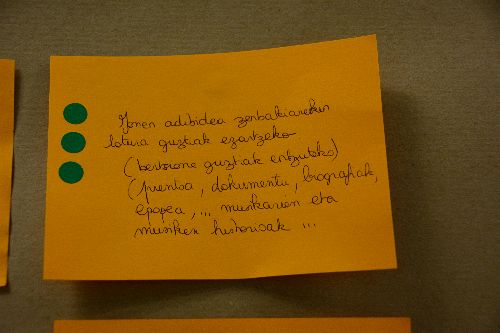 Honen adibidea zenbakiarekin
lotura guztiak ezartzeko
(bertsione guztiak entzuteko)
(prentsa, dokumentu, biografiak,
epopea, ... musikarien eta
musiken historioak ...